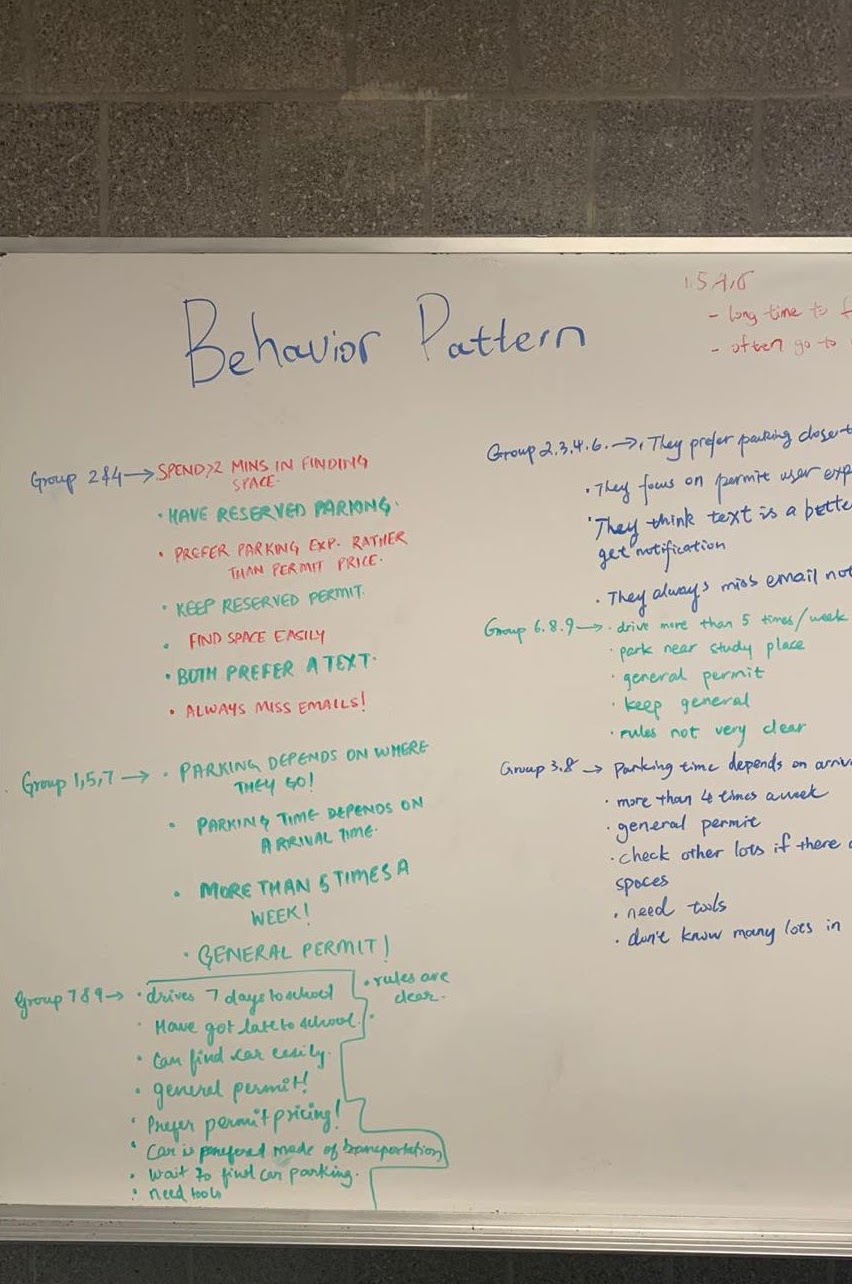 Behavior Pattern
- long time to
- often go to
Group 2&4 → SPEND >2 MINS IN FINDING
SPACE.
• HAVE RESERVED PARKING.
• PREFER PARKING EXP. RATHER
THAN PERMIT PRICE.
• KEEP RESERVED PERMIT.
• FIND SPACE EASILY
• BOTH PREFER A TEXT.
• ALWAYS MISS EMAILS!
Group 1,5,7 → • PARKING DEPENDS ON WHERE
THEY GO!
• PARKING TIME DEPENDS ON
ARRIVAL TIME.
• MORE THAN 5 TIMES A
WEEK!
• GENERAL PERMIT!
Group 7&9 → • drives 7 days to school
• Have got late to school.
• Can find car easily.
• general permit!
• Prefer permit pricing!
• Car is preferred mode of transportation
• wait to find car parking.
• need tools
• rules are
clear.
Group 2.3.4.6. → • They prefer parking closer
• They focus on permit user exp
• They think text is a
get notification
• They always miss email
Group 6.8.9 → • drive more than 5 times/week
• park near study place
• general permit
• keep general
• rules not very clear
Group 3.8 → Parking time depends on
• more than 4 times a week
• general permit
• check other lots if there
spaces
• need tools
• don't know many lots in